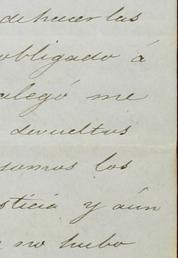 de hacer las
obligado á
alegó me
devueltos
somos los
sticia y aún
no hubo